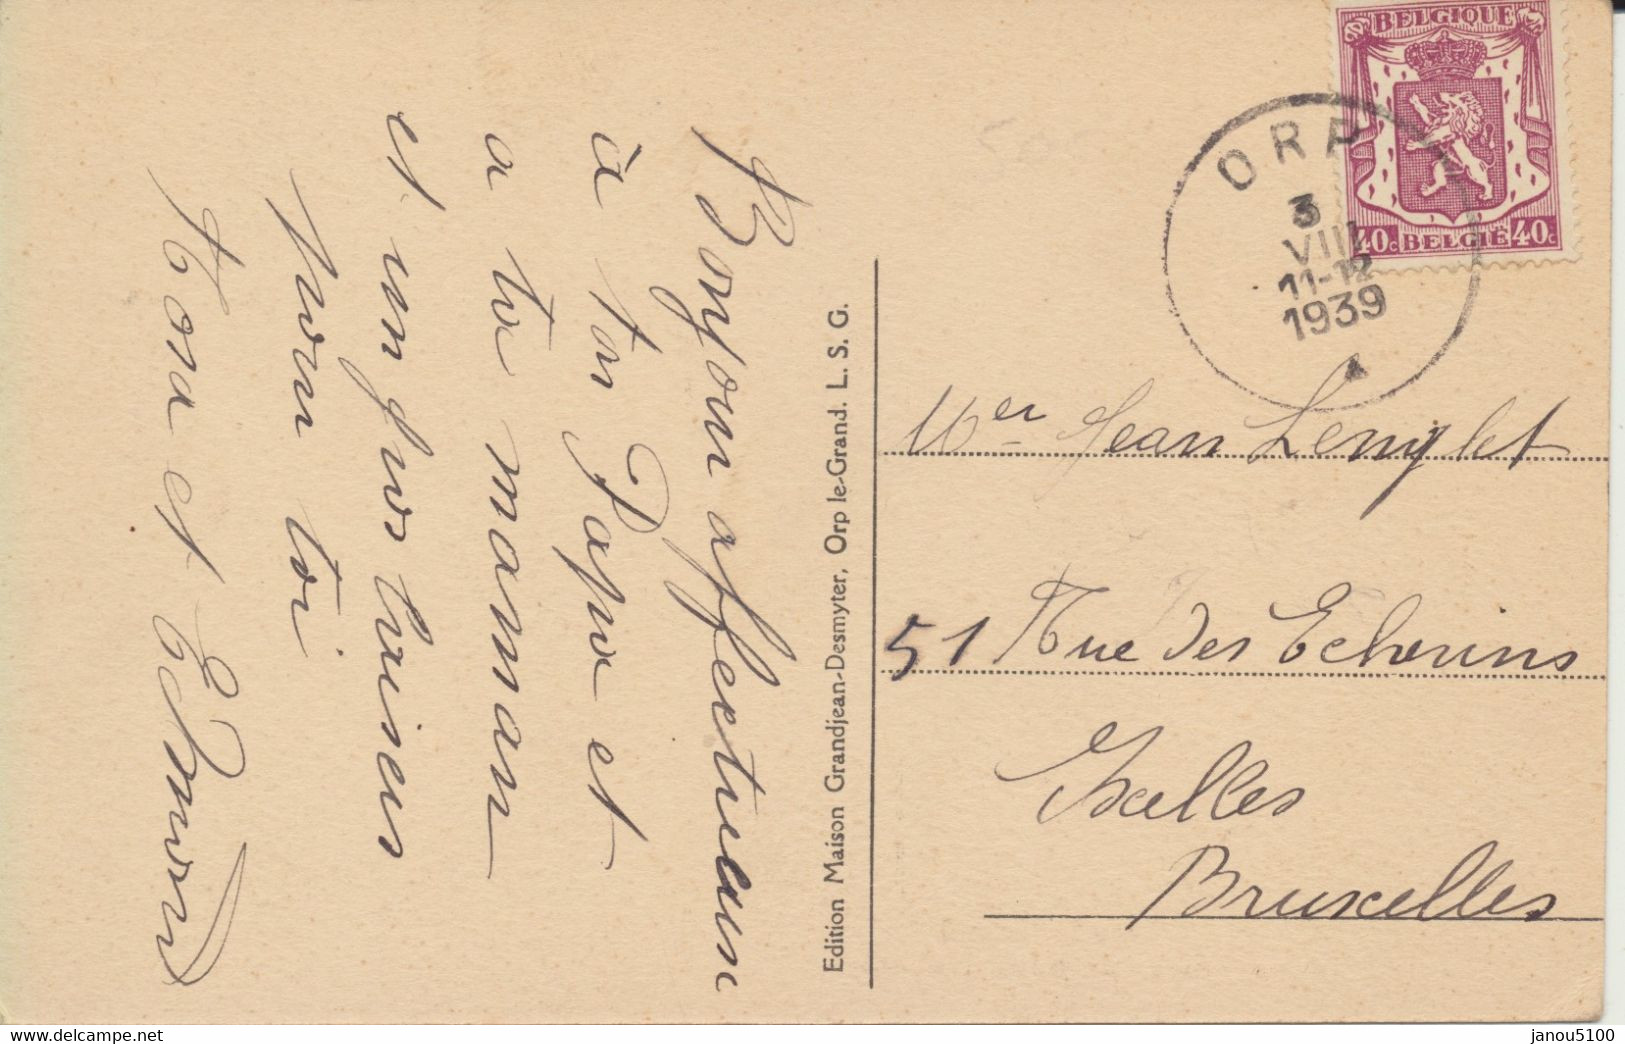 Bonjour affectueux
à ton Papa et
a ta maman
et un gros baiser
pour toi
Nona et Edmond
Edition Maison Grandjean-Desmyter, Orp le-Grand. L. S. G.
BELGIQUE
40c BELGIË 40c
ORP
3
VIII
11-12
1939
Mer Jean Lenglet
51 Rue des Echevins
Ixelles
Bruxelles
www.delcampe.net
janou5100